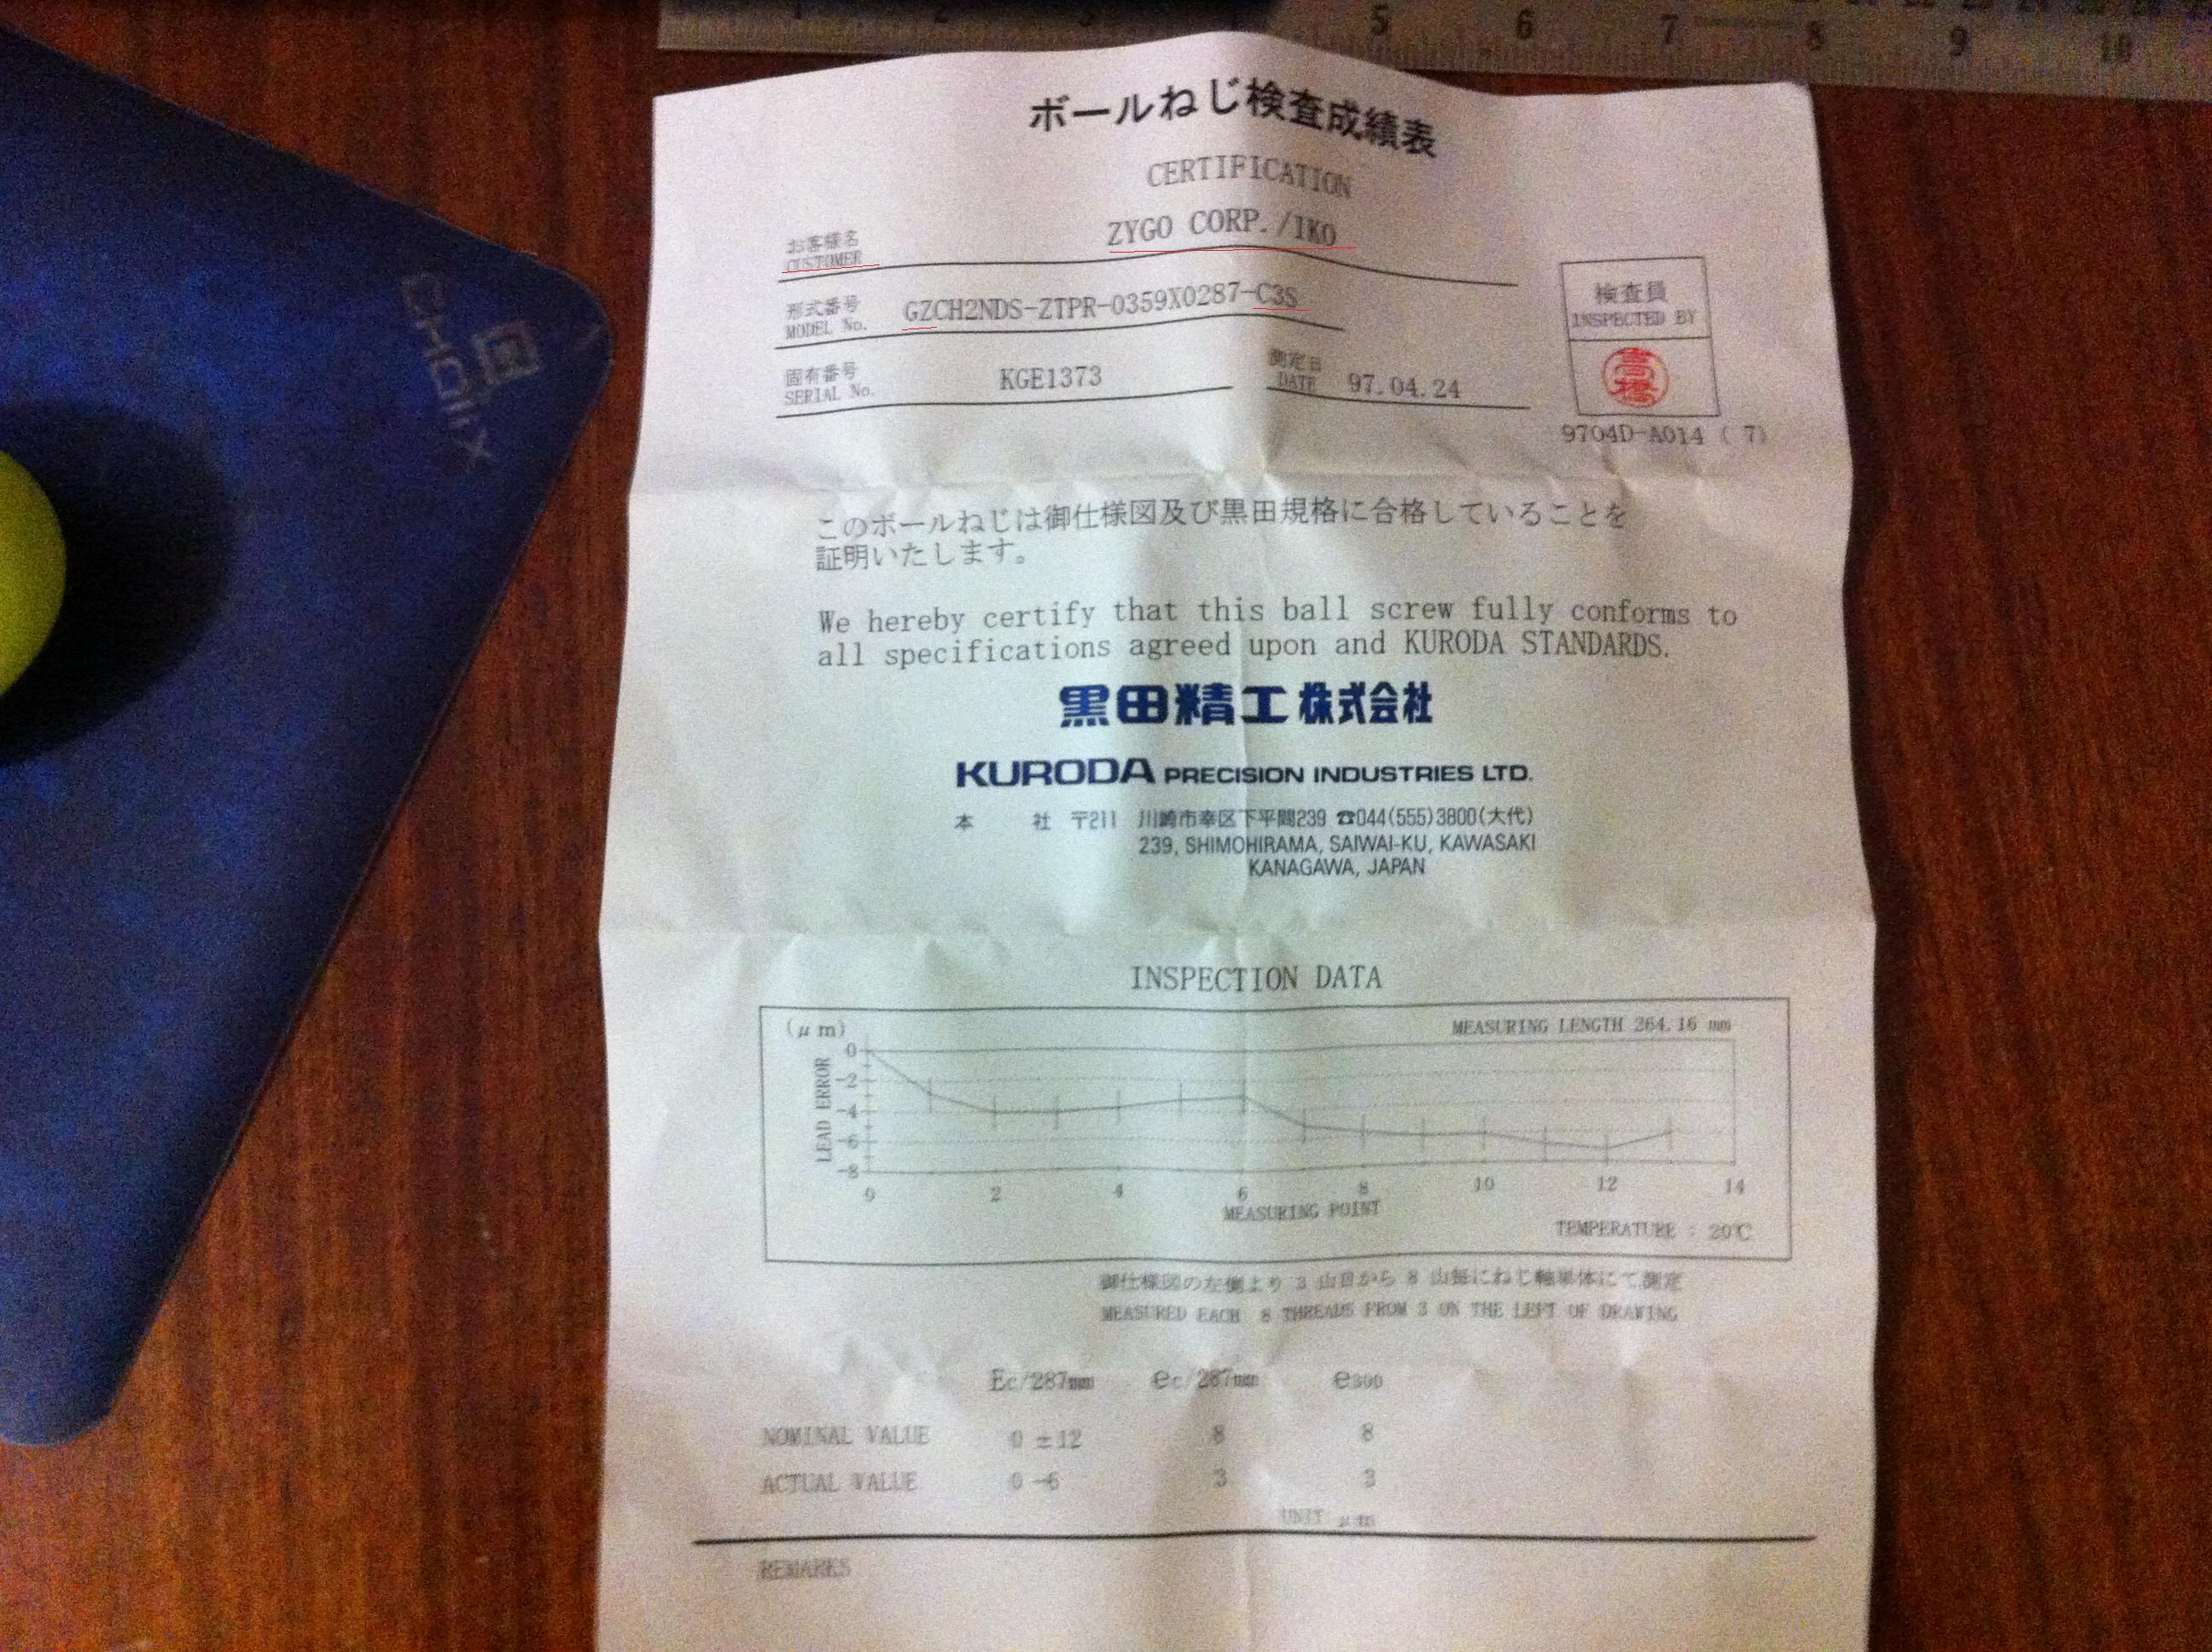 1 2 3 5 6 7 8 9 10
CHOIIX
ボールねじ検査成績表
CERTIFICATION
お客様名
CUSTOMER
ZYGO CORP./IKO
形式番号
MODEL No.
GZCH2NDS-ZTPR-0359X0287-C3S
固有番号
SERIAL No.
KGE1373
測定日
DATE
97.04.24
検査員
INSPECTED BY
高橋
9704D-A014 ( 7)
このボールねじは御仕様図及び黒田規格に合格していることを
証明いたします。
We hereby certify that this ball screw fully conforms to
all specifications agreed upon and KURODA STANDARDS.
黒田精工株式会社
KURODA PRECISION INDUSTRIES LTD.
本 社 〒211 川崎市幸区下平間239 ☎044(555)3800(大代)
239, SHIMOHIRAMA, SAIWAI-KU, KAWASAKI
KANAGAWA, JAPAN
INSPECTION DATA
(μm)
MEASURING LENGTH 264.16 mm
LEAD ERROR
0
-2
-4
-6
-8
0 2 4 6 8 10 12 14
MEASURING POINT
TEMPERATURE : 20℃
御仕様図の左側より 3 山目から 8 山毎にねじ軸単体にて測定
MEASURED EACH 8 THREADS FROM 3 ON THE LEFT OF DRAWING
Ec/287mm ec/287mm e300
NOMINAL VALUE 0 ±12 8 8
ACTUAL VALUE 0 -6 3 3
UNIT μm
REMARKS